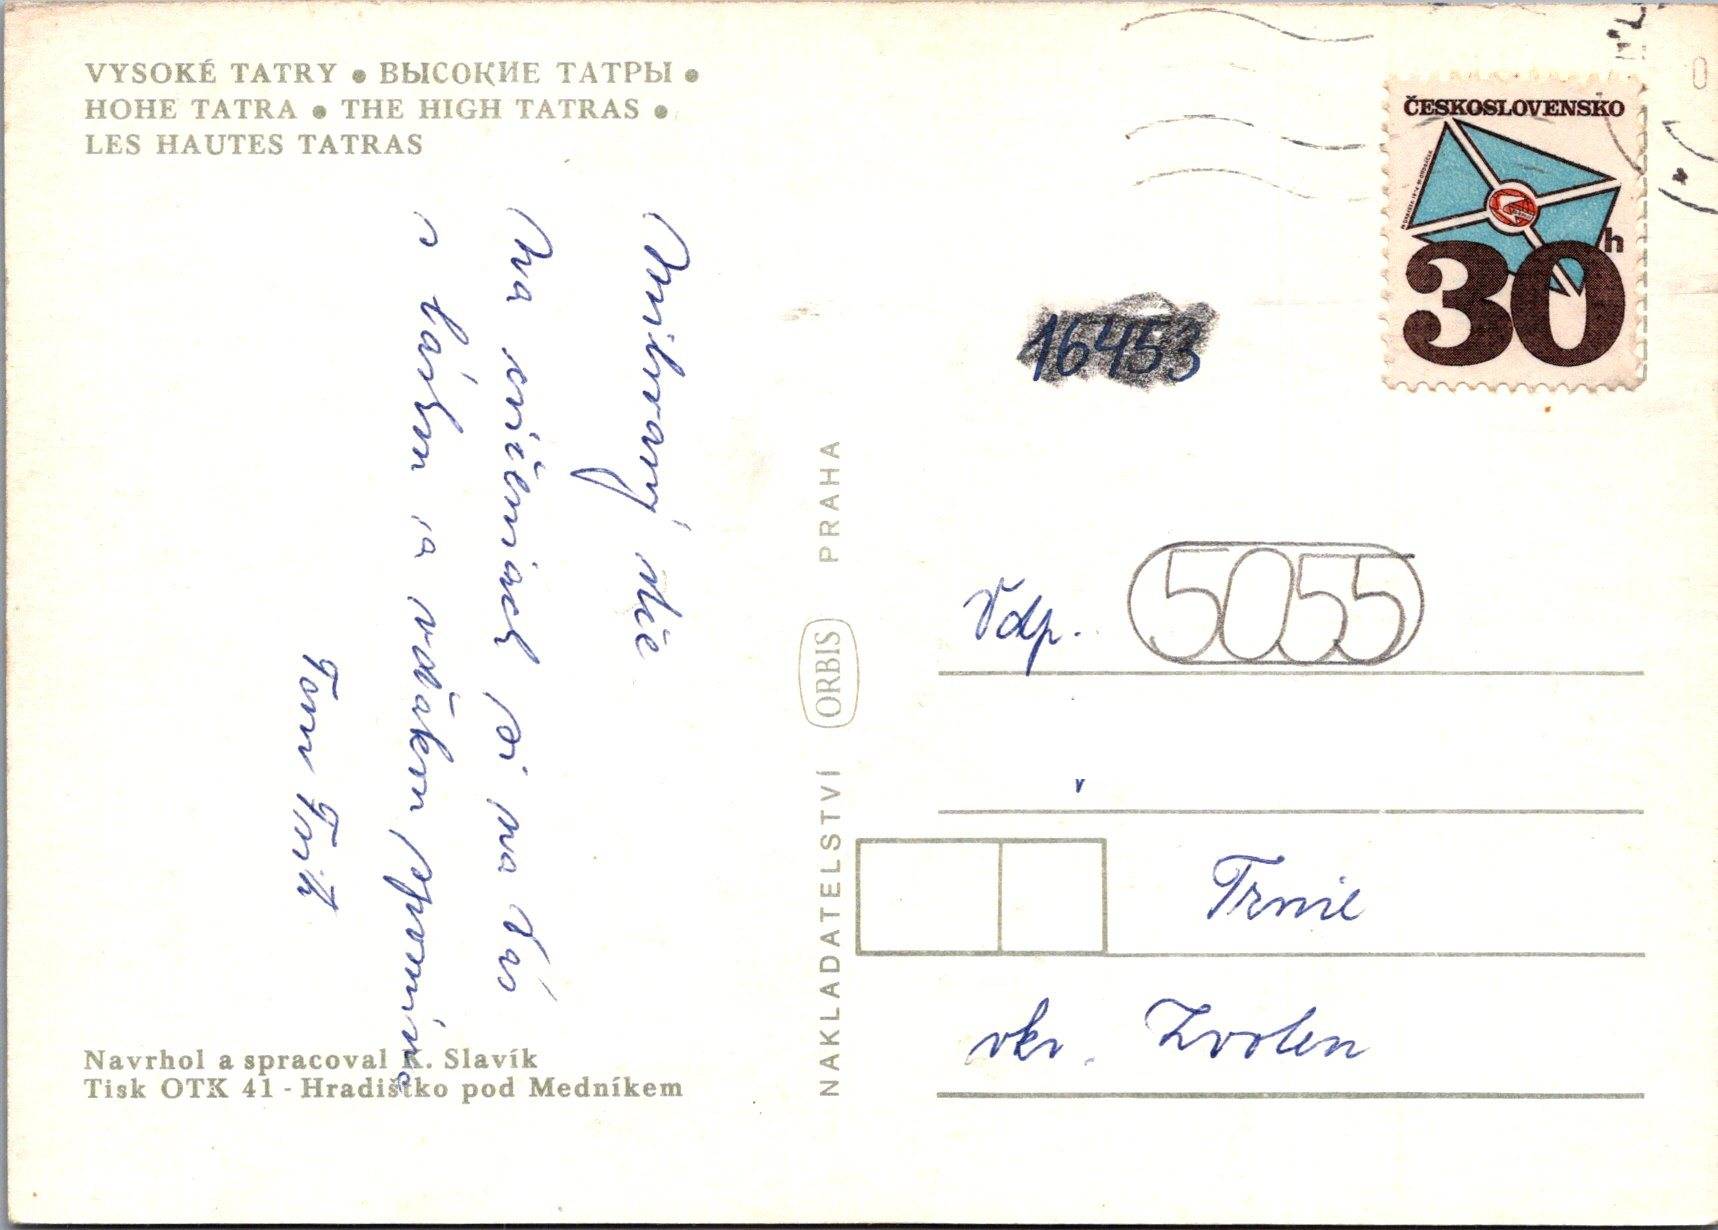 VYSOKÉ TATRY • ВЫСОКИЕ ТАТРЫ •
HOHE TATRA • THE HIGH TATRAS •
LES HAUTES TATRAS
Milovaný
Na cvičeniach si na Vás
s láskou a vďakou spomína
Navrhol a spracoval K. Slavík
Tisk OTK 41 - Hradištko pod Medníkem
NAKLADATELSTVÍ ORBIS PRAHA
ČESKOSLOVENSKO
30
h
16453
Vdp.
5055
Trnie
okr. Zvolen